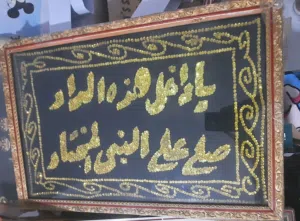 يا داخل هذه الدار
صلي على النبي المختار